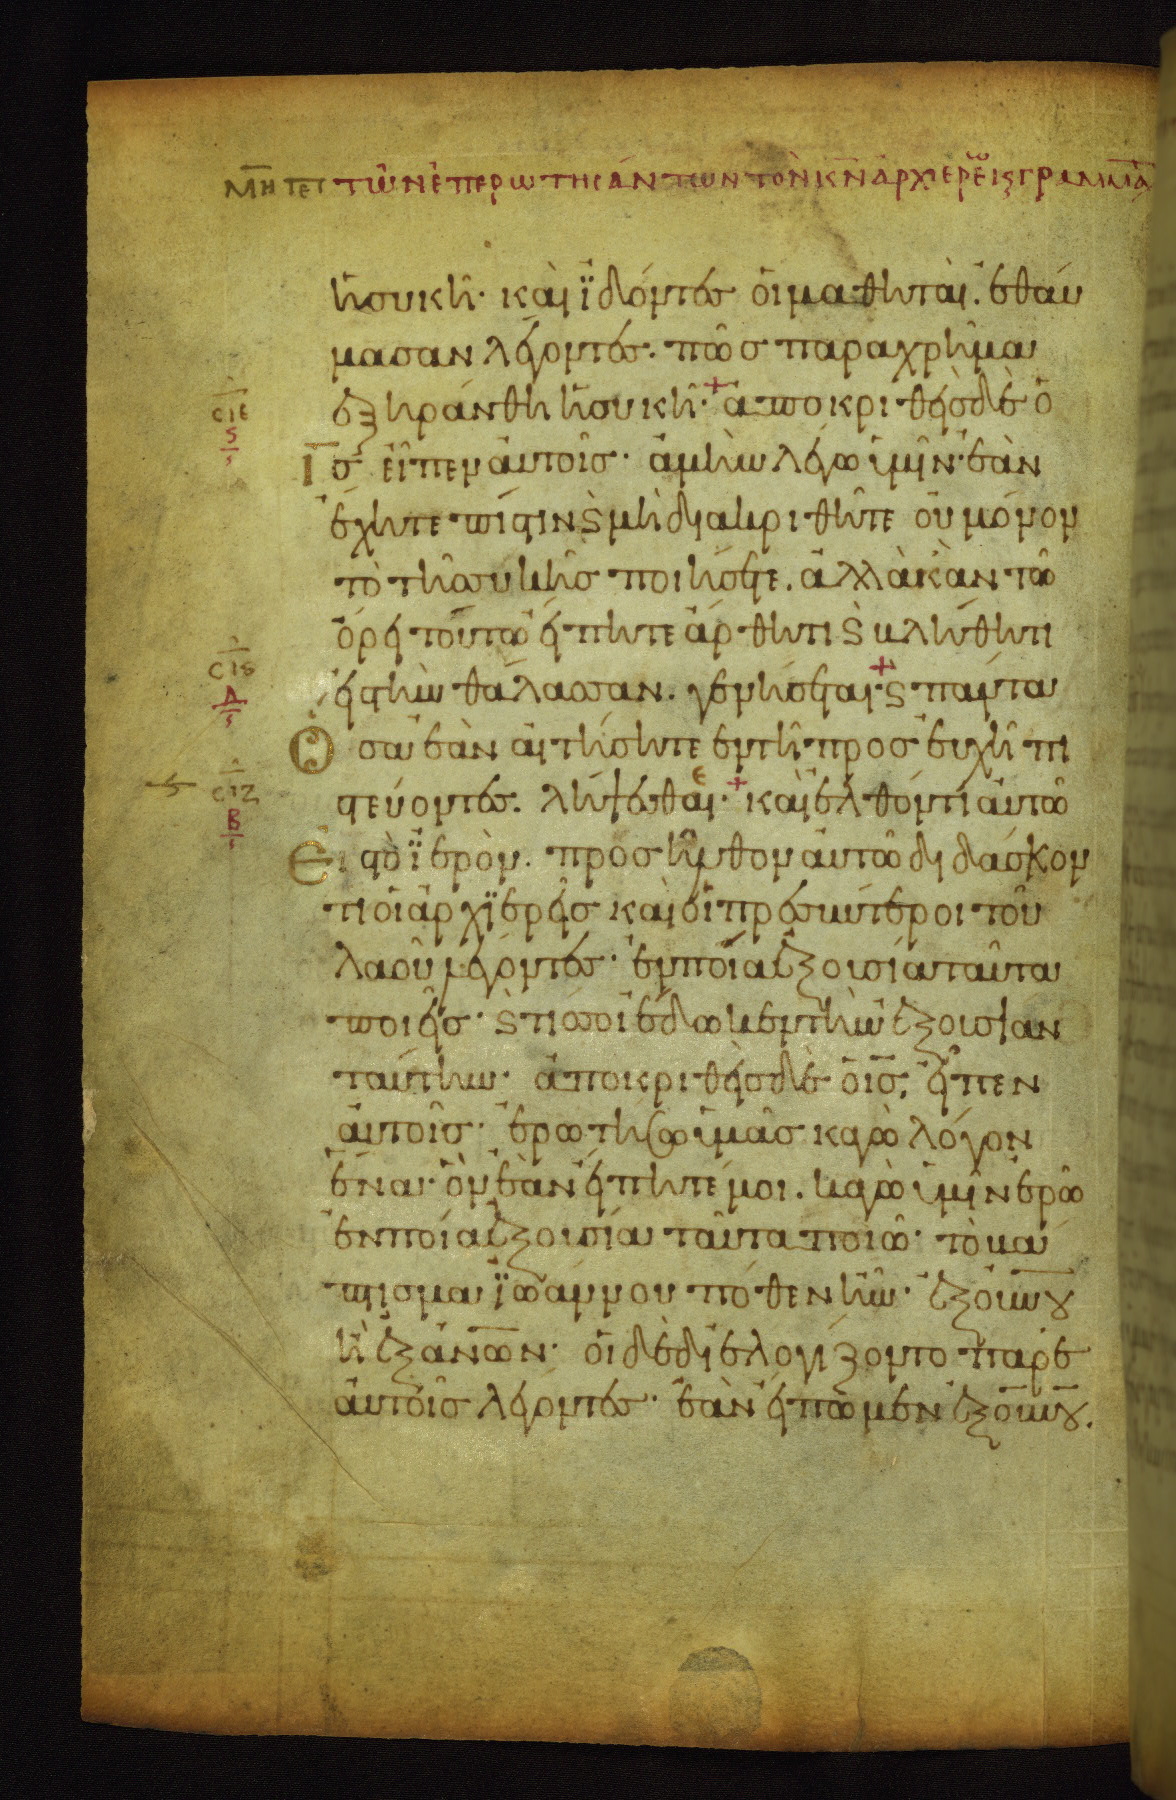 ΜΗ ΤΕΓ ΤῶΝ ἘΠΕΡΩΤΗΣΆΝΤΩΝ ΤῸΝ Κ̅Ν̅ ἈΡΧΙΕΡΈΙΣ ΓΡΑΜΜΑ
ἡ συκῆ· καὶ ϊδόντες οἱ μαθηταὶ. ἐθαύ
μασαν λέγοντες· πῶς παραχρῆμα
ἐξηράνθη ἡ συκῆ· ἀποκριθεὶς δὲ ὁ
Ι̅Σ̅ εἶπεν αὐτοῖς· ἀμὴν λέγω ὑμῖν· ἐὰν
ἔχητε πίστιν ϗ μὴ διακριθῆτε οὐ μόνον
τὸ τῆς συκῆς ποιήσετε. ἀλλὰ κἂν τῶ
ὄρει τούτω εἴπητε ἄρθητι ϗ βλήθητι
εἰς τὴν θάλασσαν. γενήσεται· ϗ πάντα
Ὅσα ἐὰν αἰτήσητε ἐν τῆ προσευχῆ πι
στεύοντες. λήψεσθαι· καὶ ἐλθόντι αὐτῶ
Εἰς τὸ ϊερὸν. προσῆλθον αὐτῶ διδάσκον
τι οἱ ἀρχϊερεῖς καὶ οἱ πρεσβύτεροι τοῦ
λαοῦ λέγοντες· ἐν ποία ἐξουσία ταῦτα
ποιεῖς· ϗ τίς σοι ἔδωκεν τὴν ἐξουσίαν
ταύτην· ἀποκριθεὶς δὲ ὁ ι̅σ̅, εἶπεν
αὐτοῖς· ἐρωτήσω ὑμᾶς καγὼ λόγον
ἕνα· ὃν ἐὰν εἴπητέ μοι. καγὼ ὑμῖν ἐρῶ
ἐν ποία ἐξουσία ταῦτα ποιῶ· τὸ βά
πτισμα ϊωάννου πόθεν ἦν· ἐξ ουνου
ἢ ἐξ ανων· οἱ δὲ διελογίζοντο παρ ἑ
αυτοῖς λέγοντες· ἐὰν εἴπωμεν ἐξ ουνου.
ϹΙΕ
Ϛ
ϹΙϚ
Δ
ϹΙΖ
Β